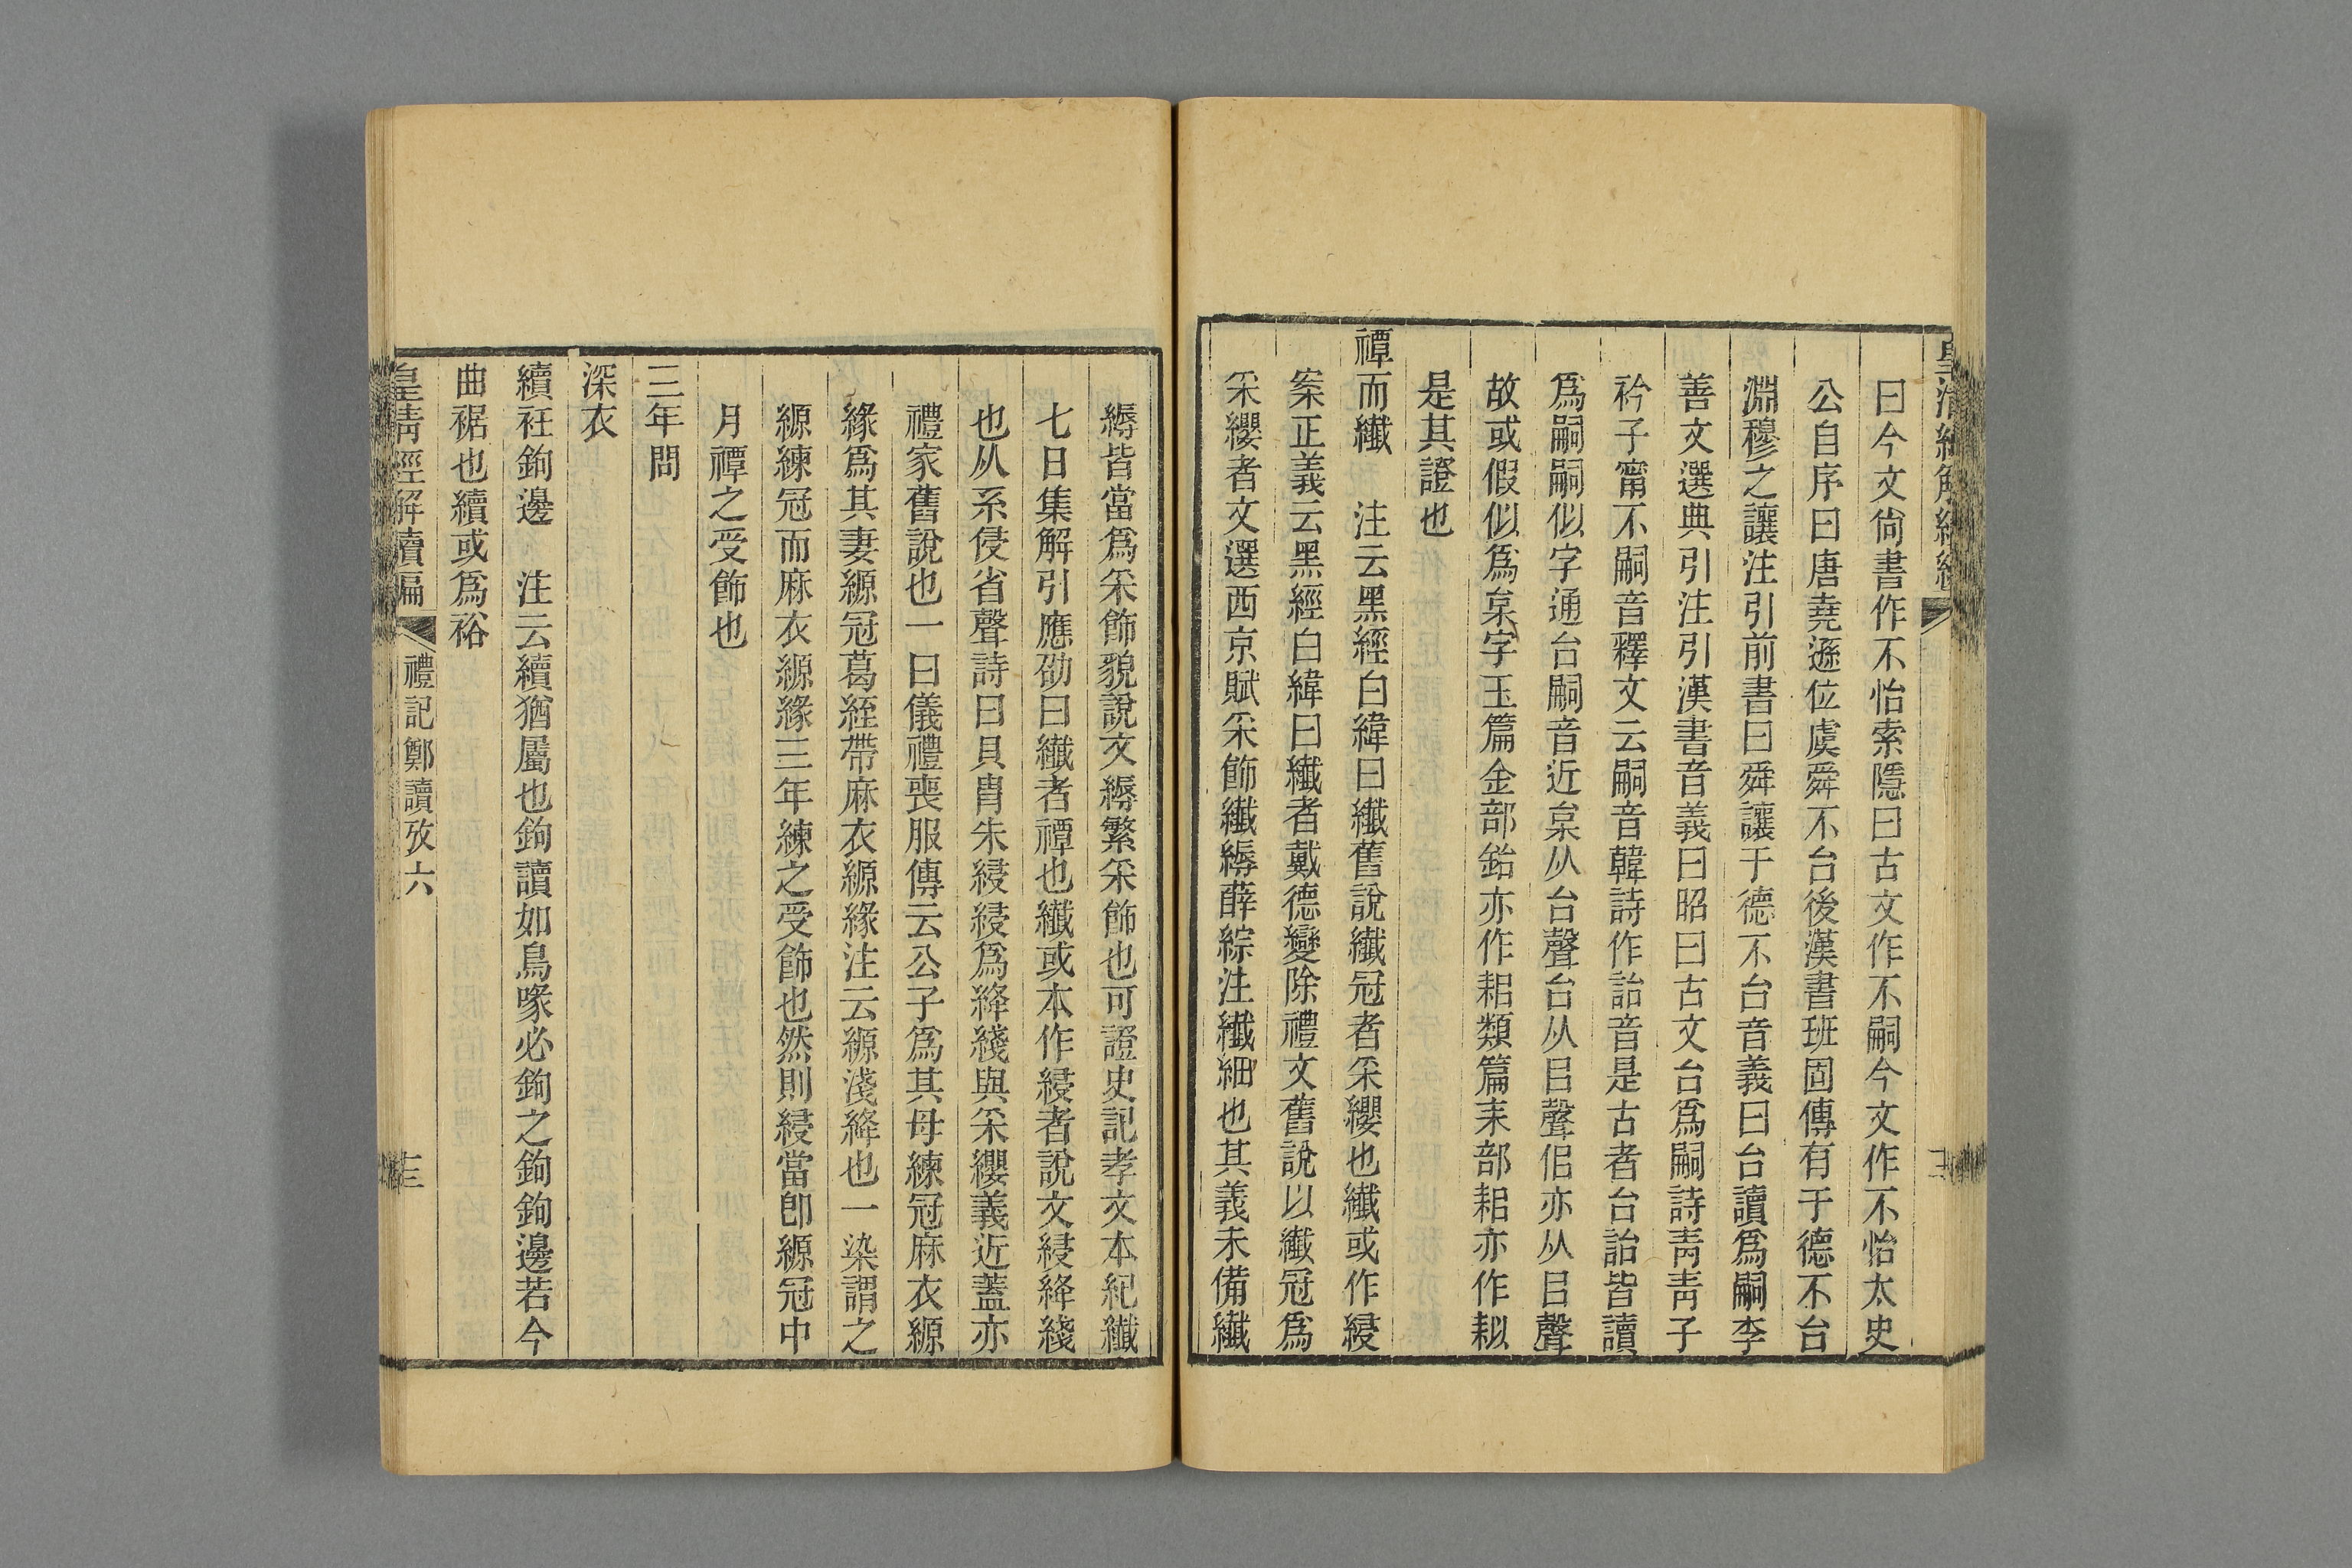 皇清經解續編
曰今文尙書作不怡索隱曰古文作不嗣今文作不怡太史
公自序曰唐堯遜位虞舜不台後漢書班固傳有于德不台
淵穆之讓注引前書曰舜讓于德不台音義曰台讀爲嗣李
善文選典引注引漢書音義曰昭曰古文台爲嗣詩靑靑子
衿子甯不嗣音釋文云嗣音韓詩作詒音是古者台詒皆讀
爲嗣嗣似字通台嗣音近枲从台聲台从㠯聲佀亦从㠯聲
故或假似爲枲字玉篇金部鈶亦作耜類篇耒部耜亦作耛
是其證也
禫而纖　注云黑經白緯曰纖舊說纖冠者采纓也纖或作綅
案正義云黑經白緯曰纖者戴德變除禮文舊說以纖冠爲
采纓者文選西京賦采飾纖縟薛綜注纖細也其義未備纖
縟皆當爲采飾貌說文縟繁采飾也可證史記孝文本紀纖
七日集解引應劭曰纖者禫也纖或本作綅者說文綅絳綫
也从糸侵省聲詩曰貝胄朱綅綅爲絳綫與采纓義近蓋亦
禮家舊說也一曰儀禮喪服傳云公子爲其母練冠麻衣縓
緣爲其妻縓冠葛絰帶麻衣縓緣注云縓淺絳也一染謂之
縓練冠而麻衣縓緣三年練之受飾也然則綅當卽縓冠中
月禫之受飾也
三年問
深衣
續衽鉤邊　注云續猶屬也鉤讀如鳥喙必鉤之鉤鉤邊若今
曲裾也續或爲裕
皇淸經解續編　禮記鄭讀攷六